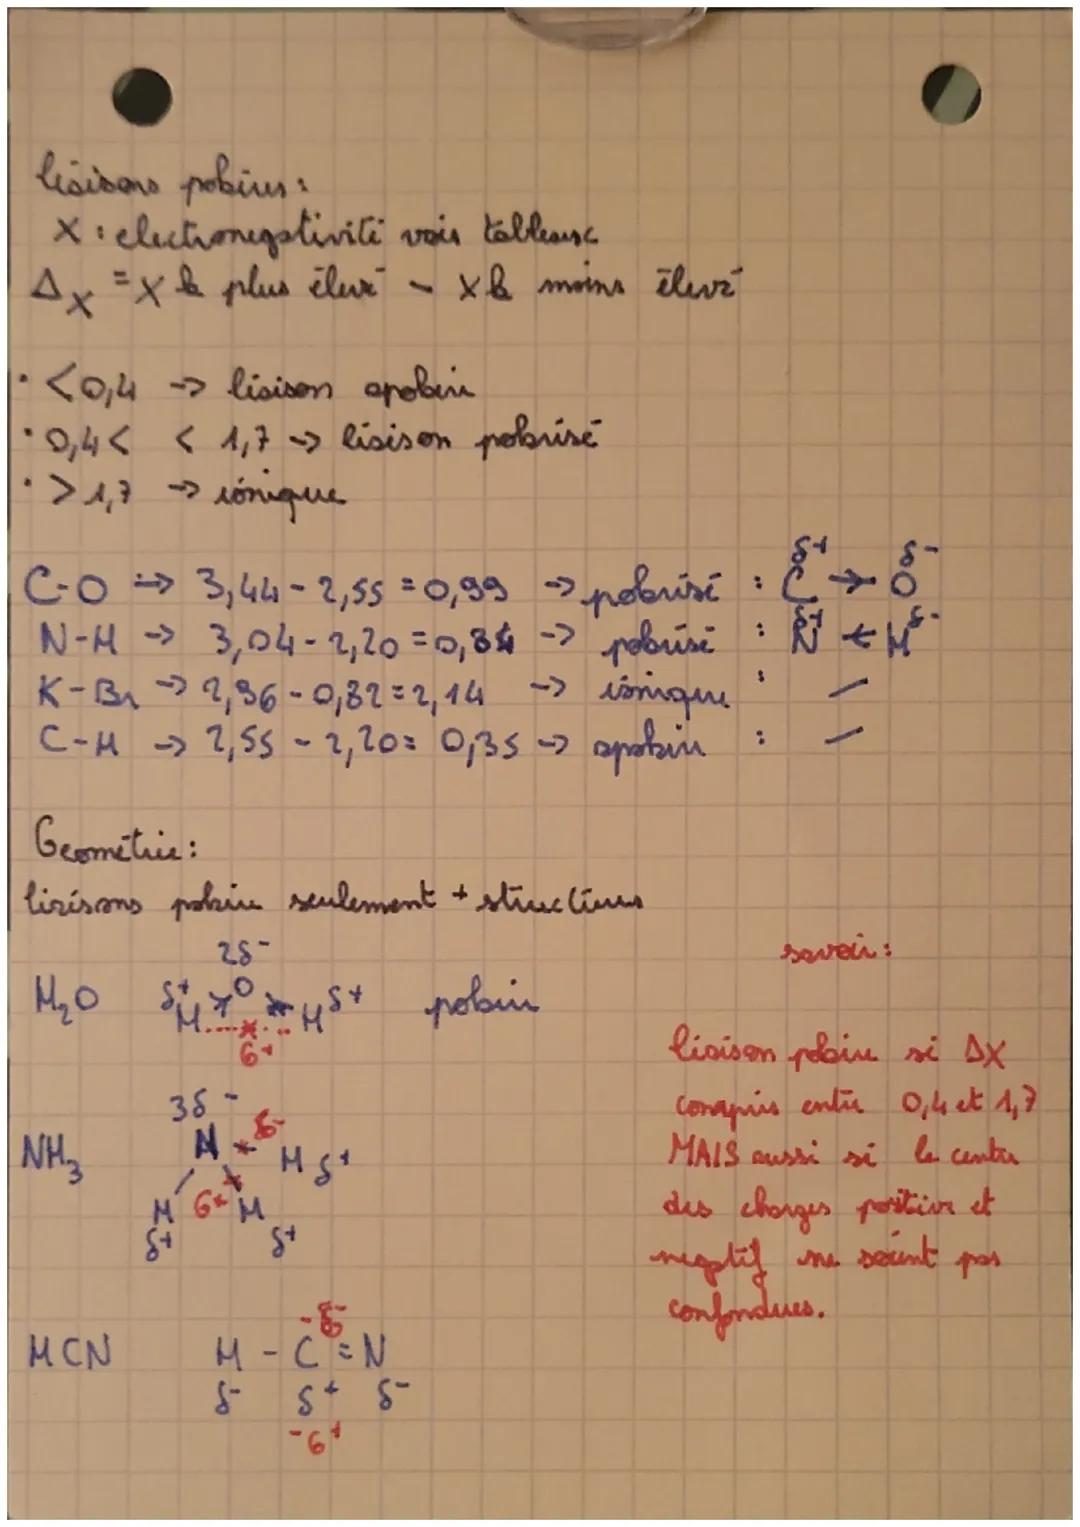 liaisons polaires :
X : electronegativité voir tableaux
ΔX = X le plus élevé - X le moins élevé
· < 0,4 -> liaison apolaire
· 0,4 <   < 1,7 -> liaison polarisé
· > 1,7 -> ionique
C-O -> 3,44 - 2,55 = 0,99 -> polarisé : δ+ C -> O δ-
N-H -> 3,04 - 2,20 = 0,84 -> polarisé : δ+ N <- H δ-
K-Br -> 2,96 - 0,82 = 2,14 -> ionique : /
C-H -> 2,55 - 2,20 = 0,35 -> apolaire : /
Geométrie :
liaisons polaire seulement + structures
2δ-
H2O δ+ H O H δ+ polaire
G+
3δ-
NH3 N G- H δ+
H G+ H
δ+ δ+
G-
HCN H - C ≡ N
δ- δ+ δ-
G+
savoir :
liaison polaire si ΔX
compris entre 0,4 et 1,7
MAIS aussi si le centre
des charges positive et
négatif ne soient pas
confondues.